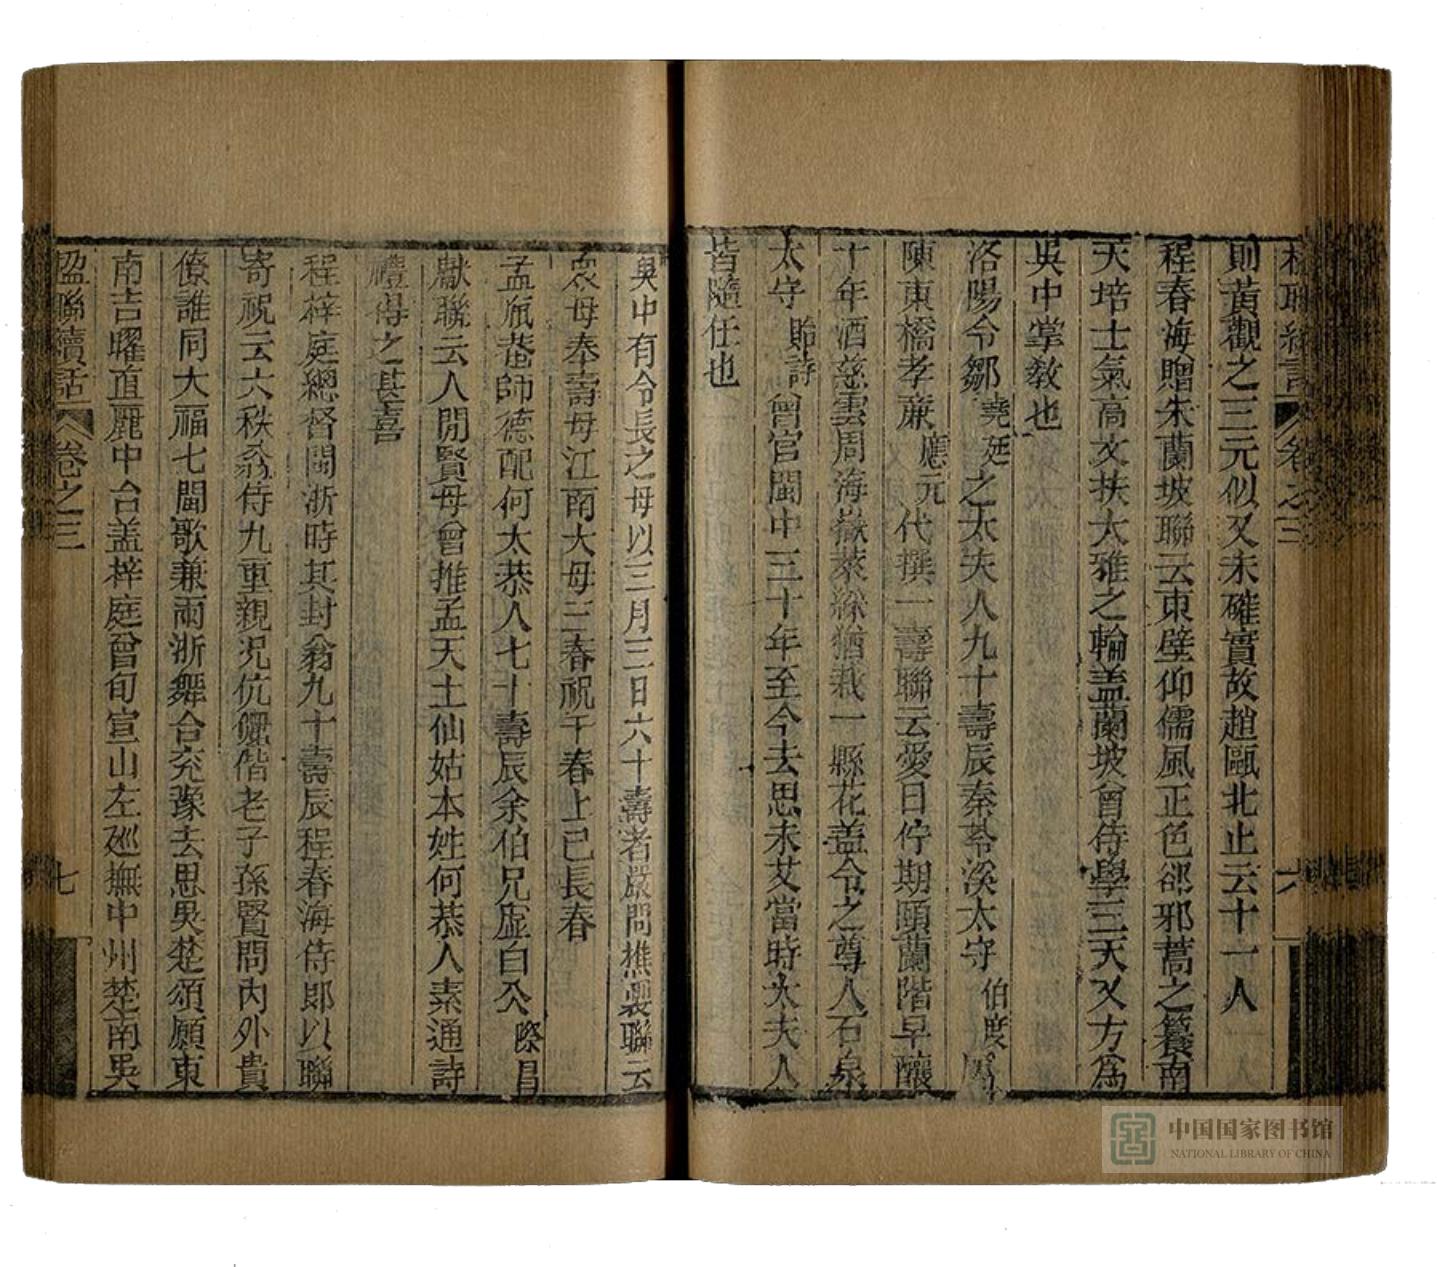 楹聯續話 卷之三 六
則黃觀之三元似又未確實故趙甌北止云十一人
程春海贈朱蘭坡聯云東壁仰儒風正色郤邪蒿之簒南
天培士氣高文扶大雅之輪盖蘭坡曾侍學三天又方為
吳中掌敎也
洛陽令鄒堯廷之太夫人九十壽辰秦菩溪太守伯度屬
陳東橋孝亷應元代撰一壽聯云愛日佇期頤蘭階早釀
十年酒慈雲周海嶽萊綵猶栽一縣花盖令之尊人石泉
太守貽詩曾官閩中三十年至今去思未艾當時太夫人
皆隨任也
吳中有令長之母以三月三日六十壽者嚴問樵製聯云
眾母奉壽母江南大母三春祝千春上巳長春
孟瓶菴師德配何太恭人七十壽辰余伯兄虛白公際昌
獻聯云人閒賢母曾推孟天上仙姑本姓何恭人素通詩
禮得之甚喜
程梓庭總督閩浙時其封翁九十壽辰程春海侍郎以聯
寄祝云六秩翁侍九重親况伉儷偕老子孫賢問內外貴
僚誰同大福七閩歌兼兩浙舞合兖豫去思吳楚頌願東
南吉曜直麗中台盖梓庭曾旬宣山左廵撫中州楚南吳
楹聯續話 卷之三 七
中国国家图书馆
NATIONAL LIBRARY OF CHINA